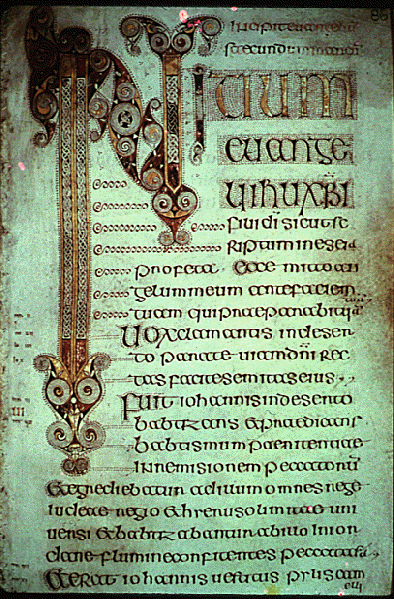 86
Incipit euangelium
secundum marcum
INITIUM
EUANGE
LII IHU XPI
filii di sicut sc
riptum in eseia
profeta ecce mitto an
gelum meum ante faciem
tuam qui praeparabit uiā
Uox clamantis in deser
to parate uiam dni rec
tas facite semitas eius
Fuit iohannis in deserto
babtizans & praedicans
babtismum paenitentiae
in remisionem peccatorū
& egrediebatur ad illum omnes
iudeae regio & hierusolimitae uni
uersi & babtizabantur ab illo in ior
dane flumine confitentes peccata sua
& erat iohannis uestitus pilis cam
eli